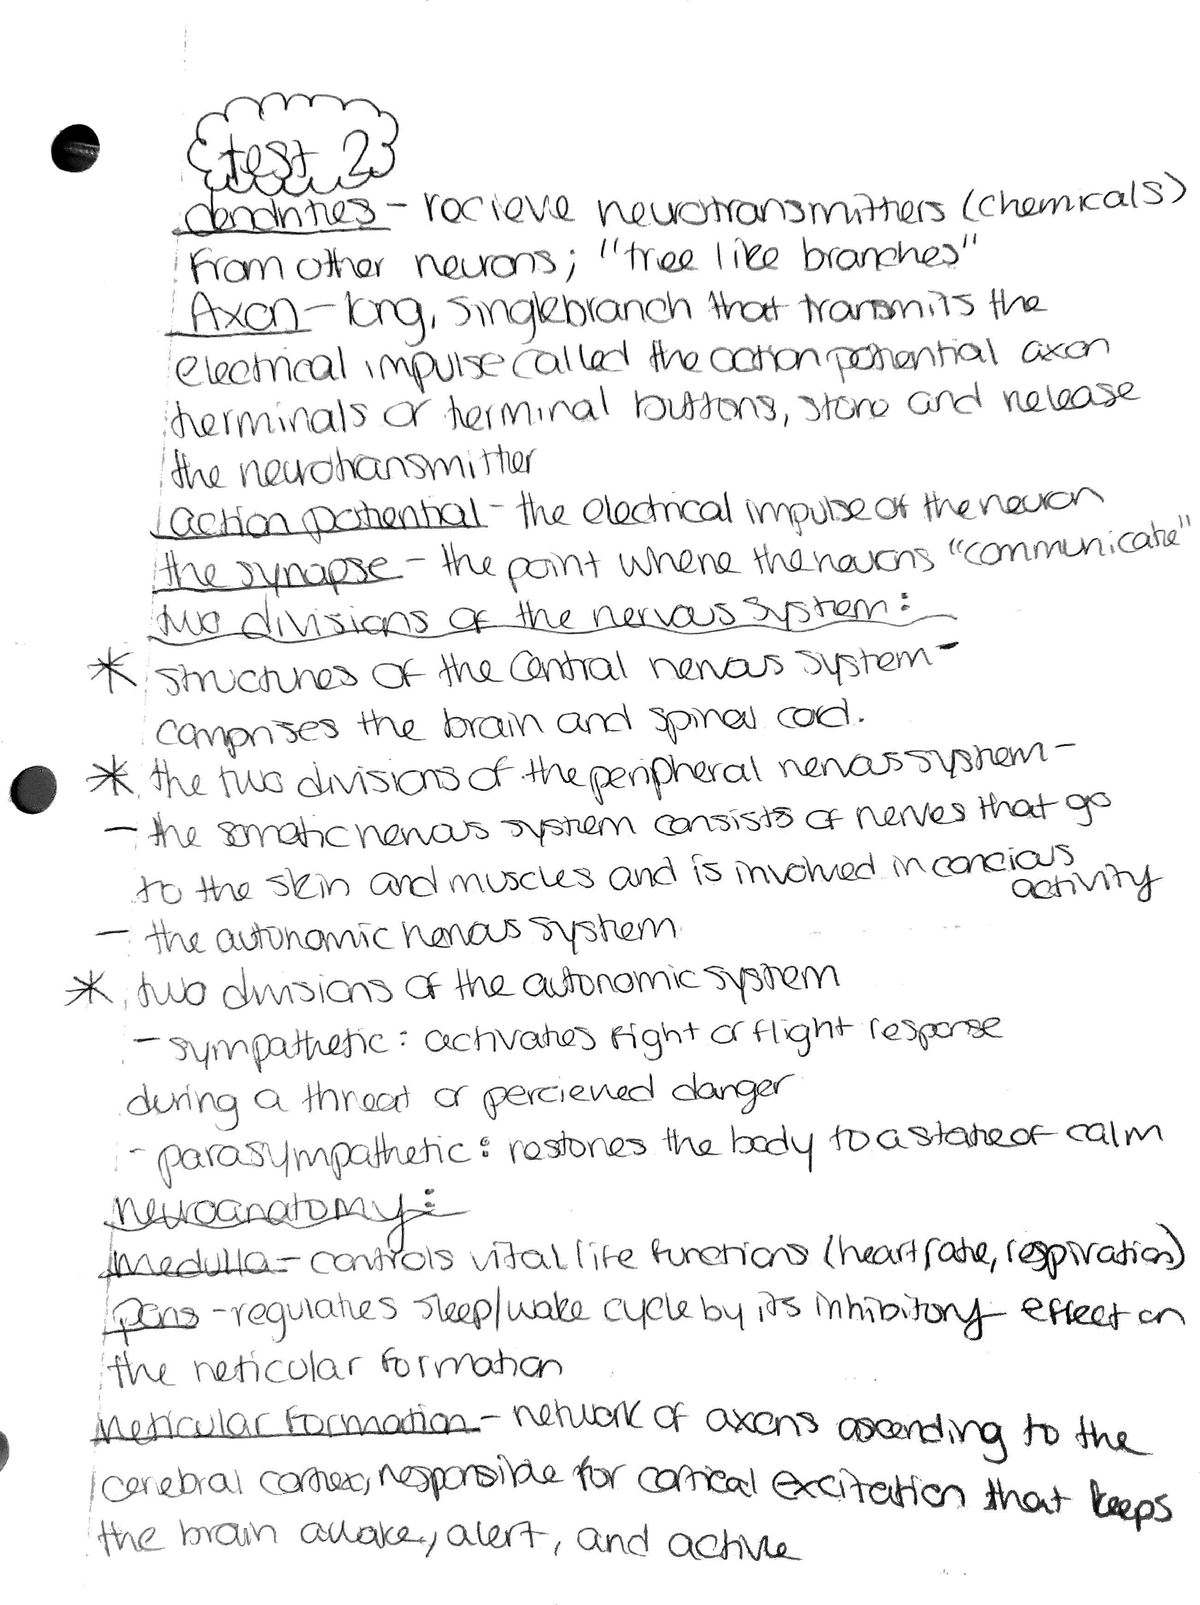 test 2
dendrities - recieve neurotransmitters (chemicals)
from other neurons; "tree like branches"
Axon - long, single branch that transmits the
electrical impulse called the action potential axon
terminals or terminal buttons, store and release
the neurotransmitter
action potential - the electrical impulse of the neuron
the synapse - the point where the neurons "communicate"
two divisions of the nervous system:
* structures of the central nervous system -
comprises the brain and spinal cord.
* the two divisions of the peripheral nervous system -
- the somatic nervous system consists of nerves that go
to the skin and muscles and is involved in concious
activity
- the autonomic nervous system
* two divisions of the autonomic system
- sympathetic: activates fight or flight response
during a threat or percieved danger
- parasympathetic: restores the body to a state of calm
neuroanatomy:
medulla - controls vital life functions (heart rate, respiration)
Pons - regulates sleep/wake cycle by its inhibitory effect on
the reticular formation
reticular formation - network of axons ascending to the
cerebral cortex, responsible for cortical excitation that keeps
the brain awake, alert, and active